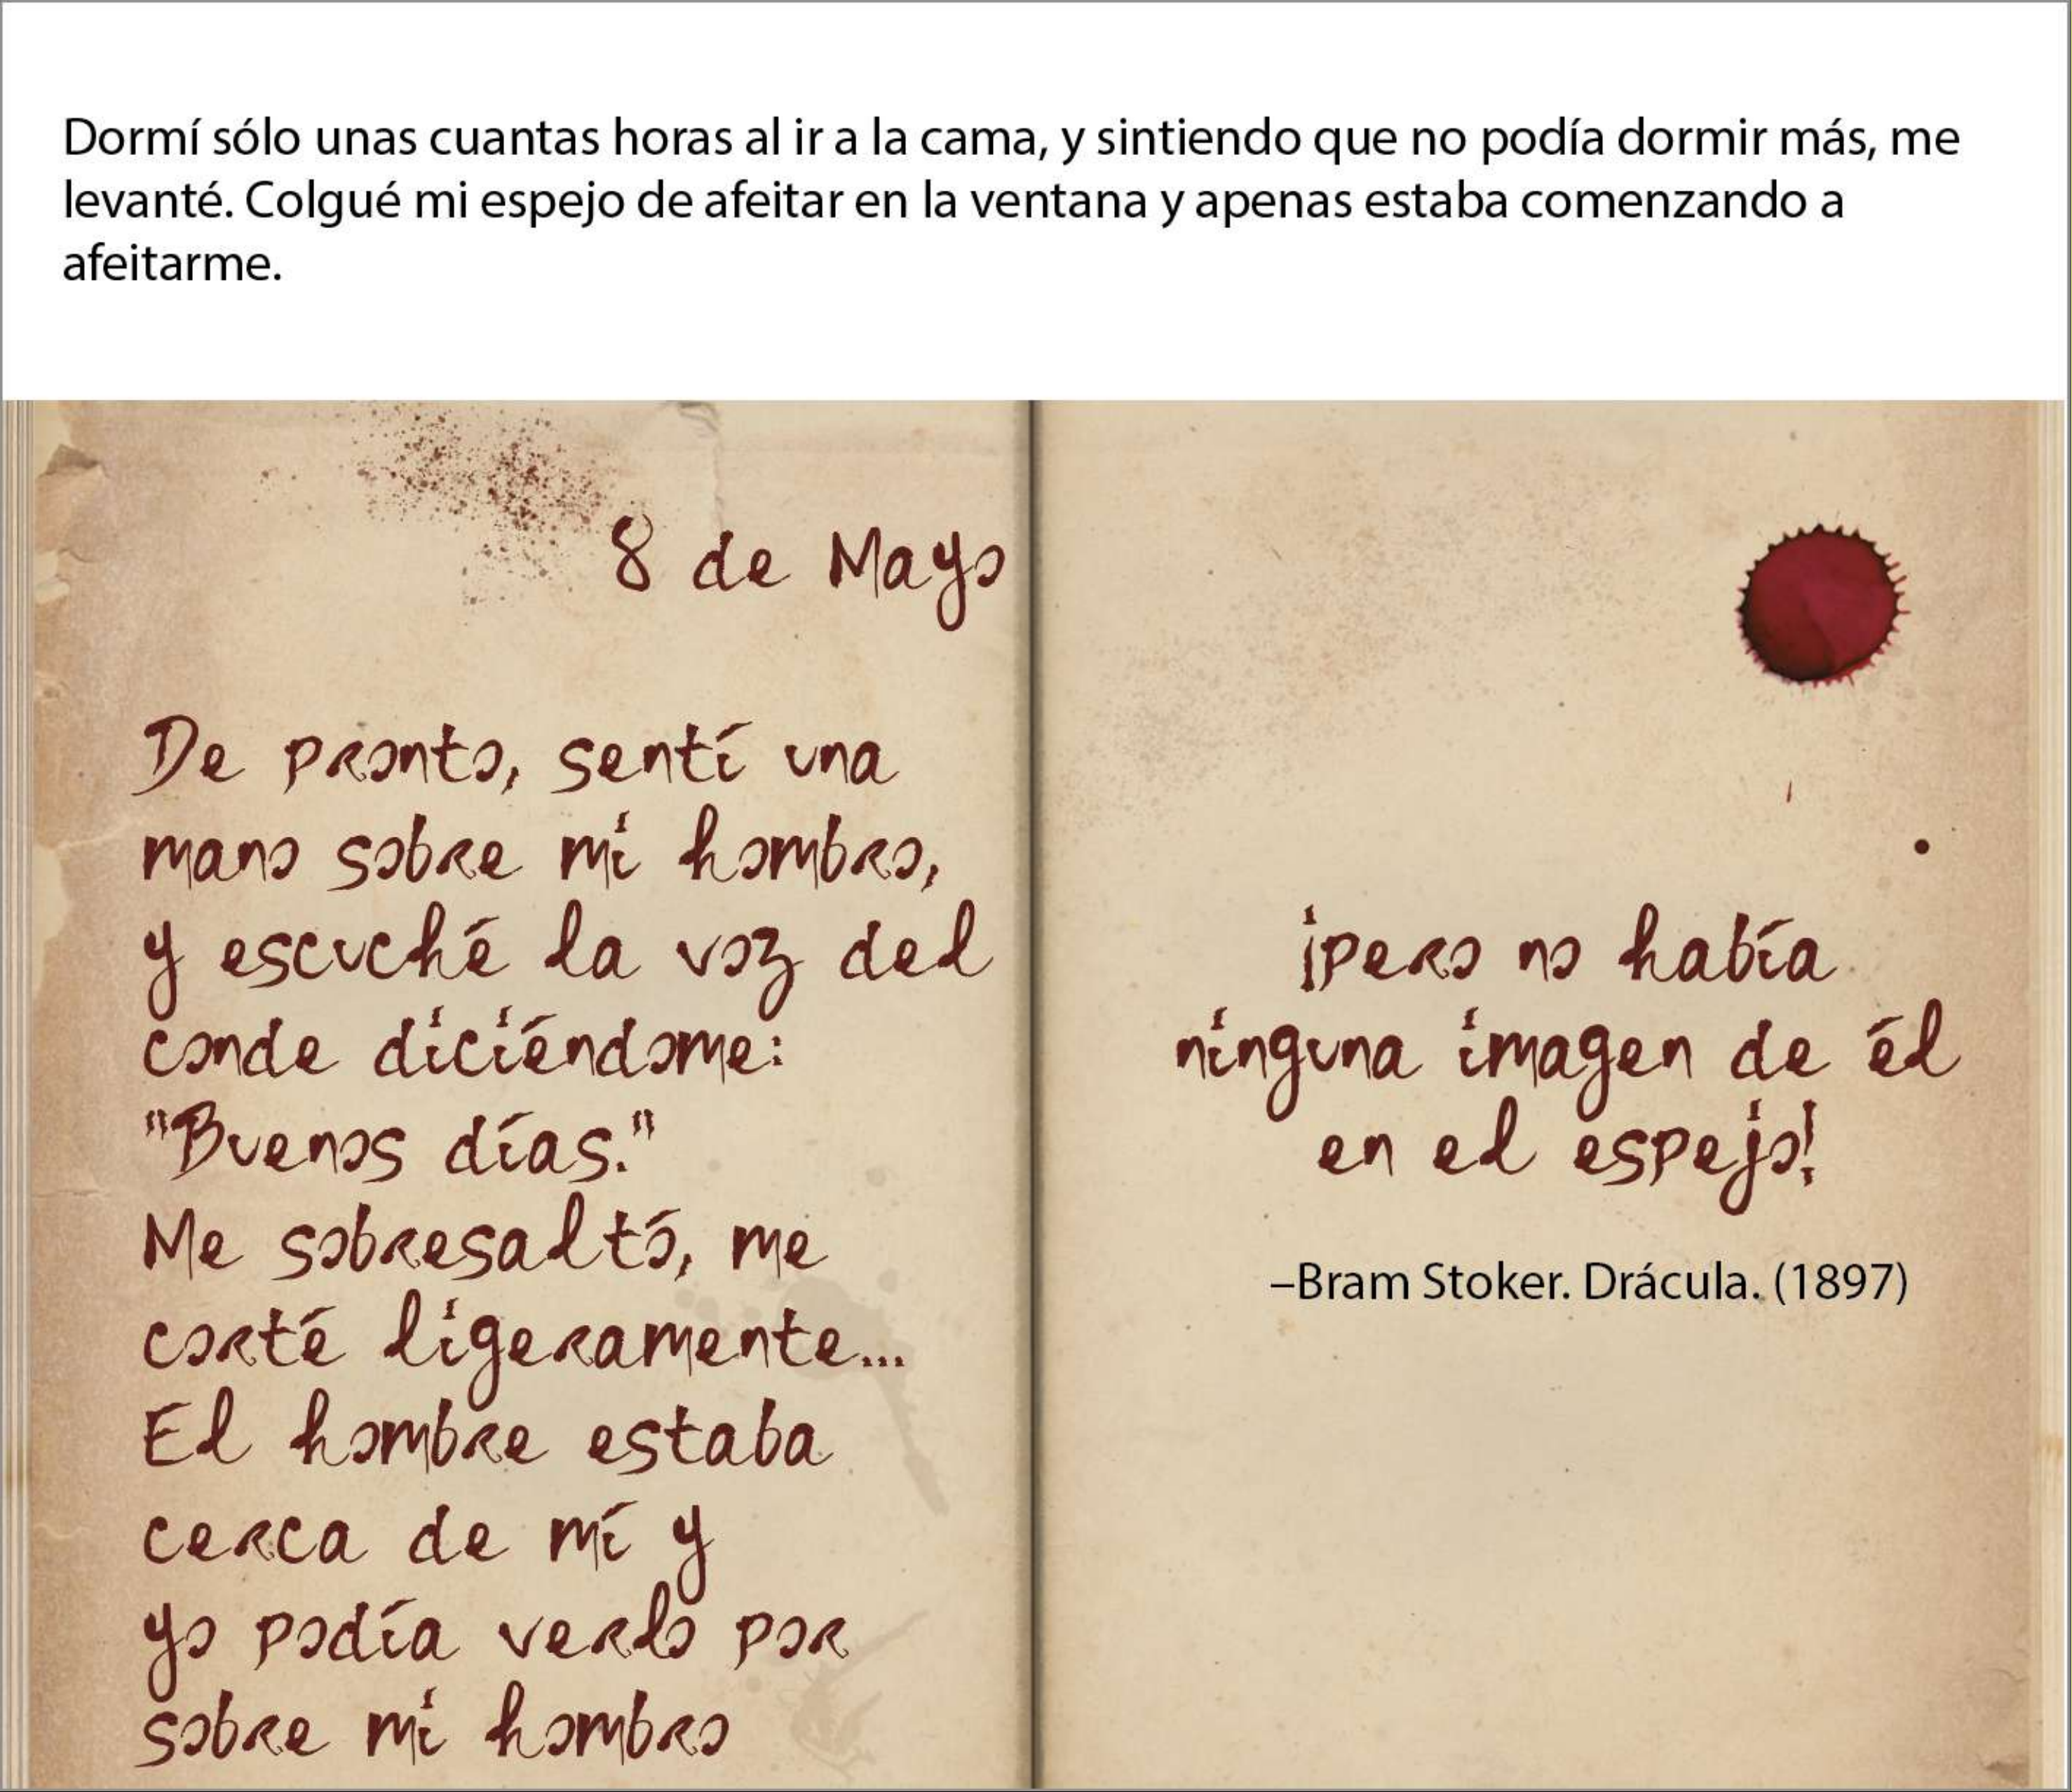 Dormí sólo unas cuantas horas al ir a la cama, y sintiendo que no podía dormir más, me
levanté. Colgué mi espejo de afeitar en la ventana y apenas estaba comenzando a
afeitarme.
8 de Mayo
De pronto, sentí una
mano sobre mi hombro,
y escuché la voz del
conde diciéndome:
"Buenos días."
Me sobresaltó, me
corté ligeramente...
El hombre estaba
cerca de mí y
yo podía verlo por
sobre mi hombro
¡pero no había
ninguna imagen de él
en el espejo!
–Bram Stoker. Drácula. (1897)